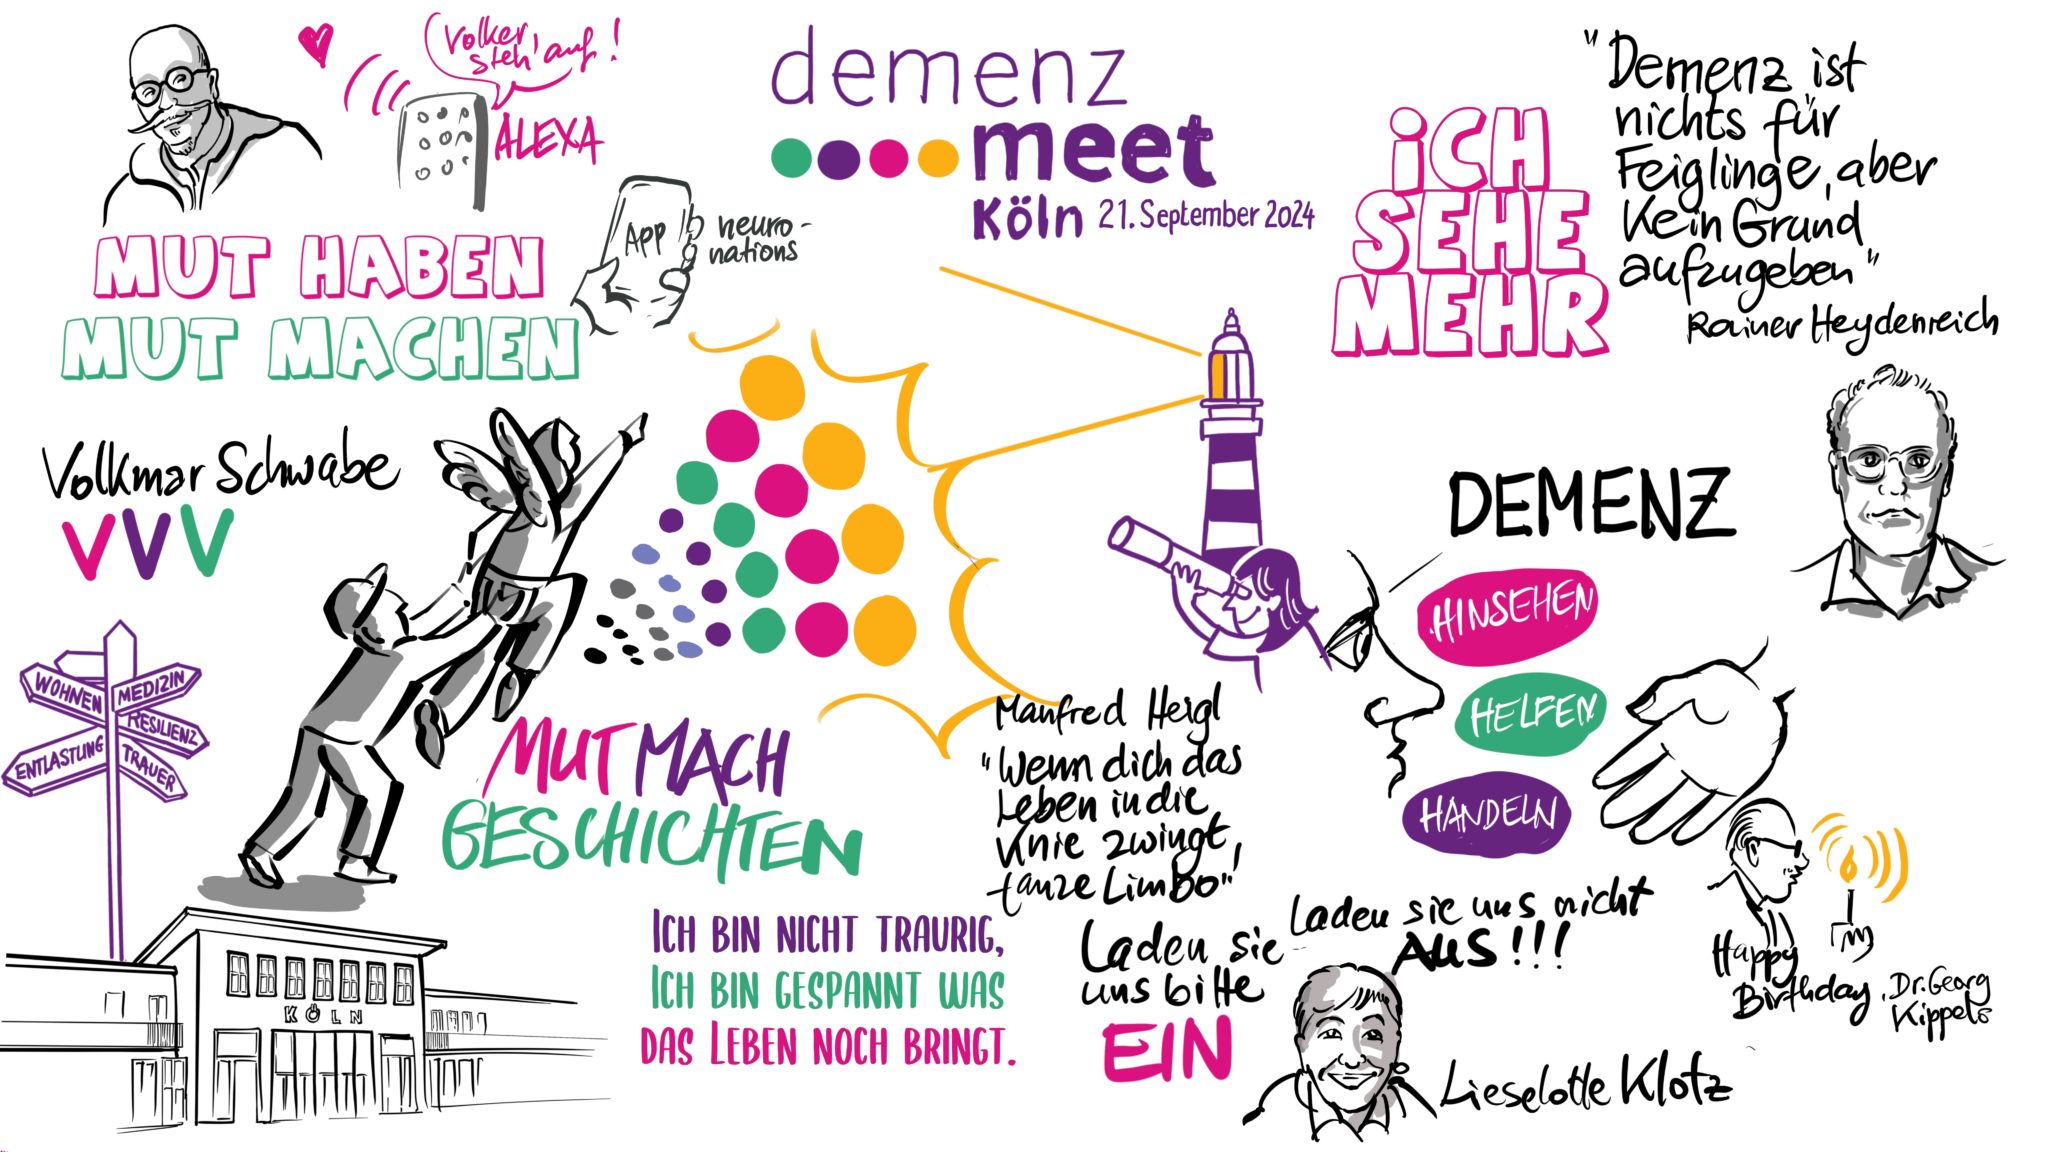 Volker,
steh' auf!
ALEXA
MUT HABEN
MUT MACHEN
App
neuro-
nations
demenz
meet
Köln 21. September 2024
ICH
SEHE
MEHR
"Demenz ist
nichts für
Feiglinge, aber
kein Grund
aufzugeben"
Rainer Heydenreich
Volkmar Schwabe
VVV
WOHNEN
MEDIZIN
RESILIENZ
ENTLASTUNG
TRAUER
KÖLN
MUTMACH
GESCHICHTEN
ICH BIN NICHT TRAURIG,
ICH BIN GESPANNT WAS
DAS LEBEN NOCH BRINGT.
DEMENZ
HINSEHEN
HELFEN
HANDELN
Manfred Heigl
"Wenn dich das
Leben in die
Knie zwingt,
tanze Limbo"
Laden sie
uns bitte
EIN
Laden sie uns nicht
AUS!!!
Lieselotte Klotz
Happy
Birthday,
Dr. Georg
Kippels